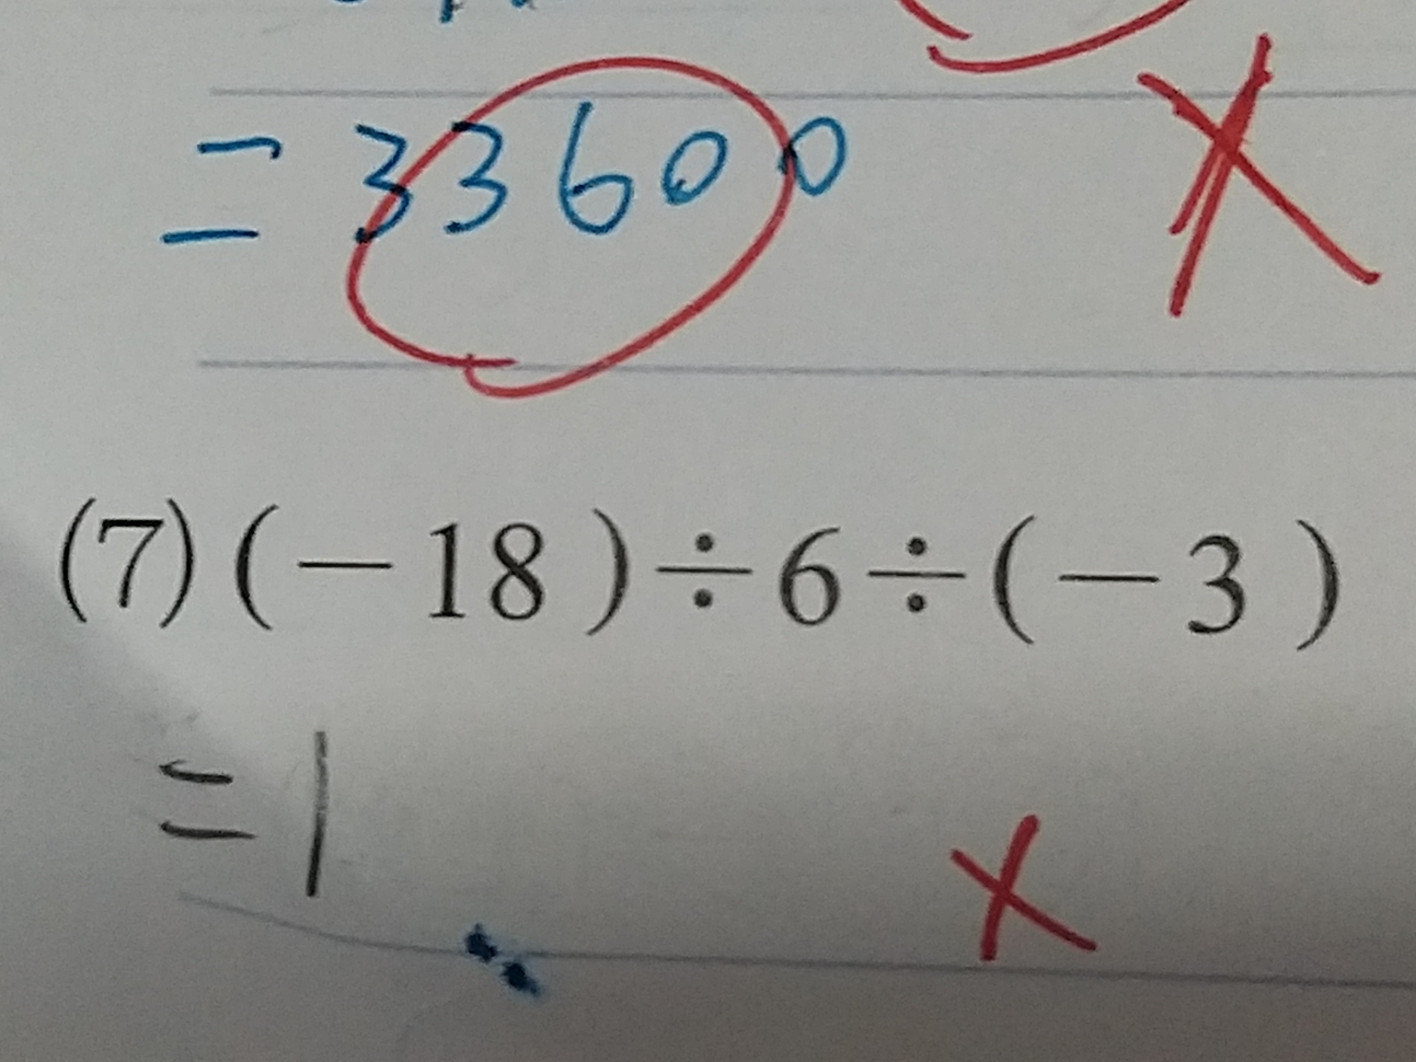 = 33600
(7) (-18) ÷ 6 ÷ (-3)
= 1